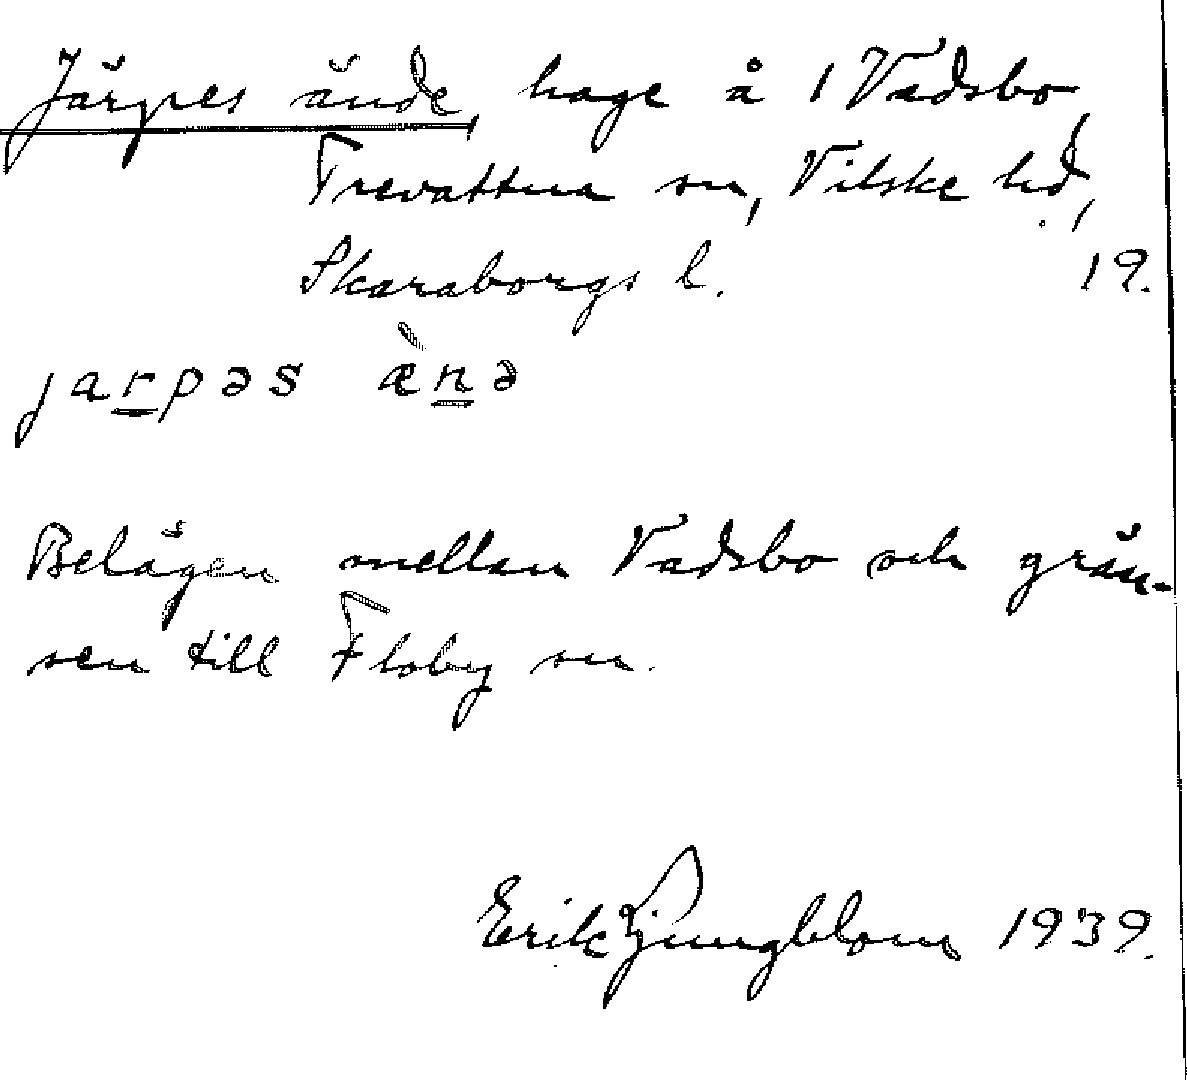 Järpes ände, hage å 1 Vadsbo
Trevattna sn, Vilske hd,
Skaraborgs l. 19.
jarpəs æ̀nə
Belägen mellan Vadsbo och grän-
sen till Floby sn.
Erik Ljungblom 1939.